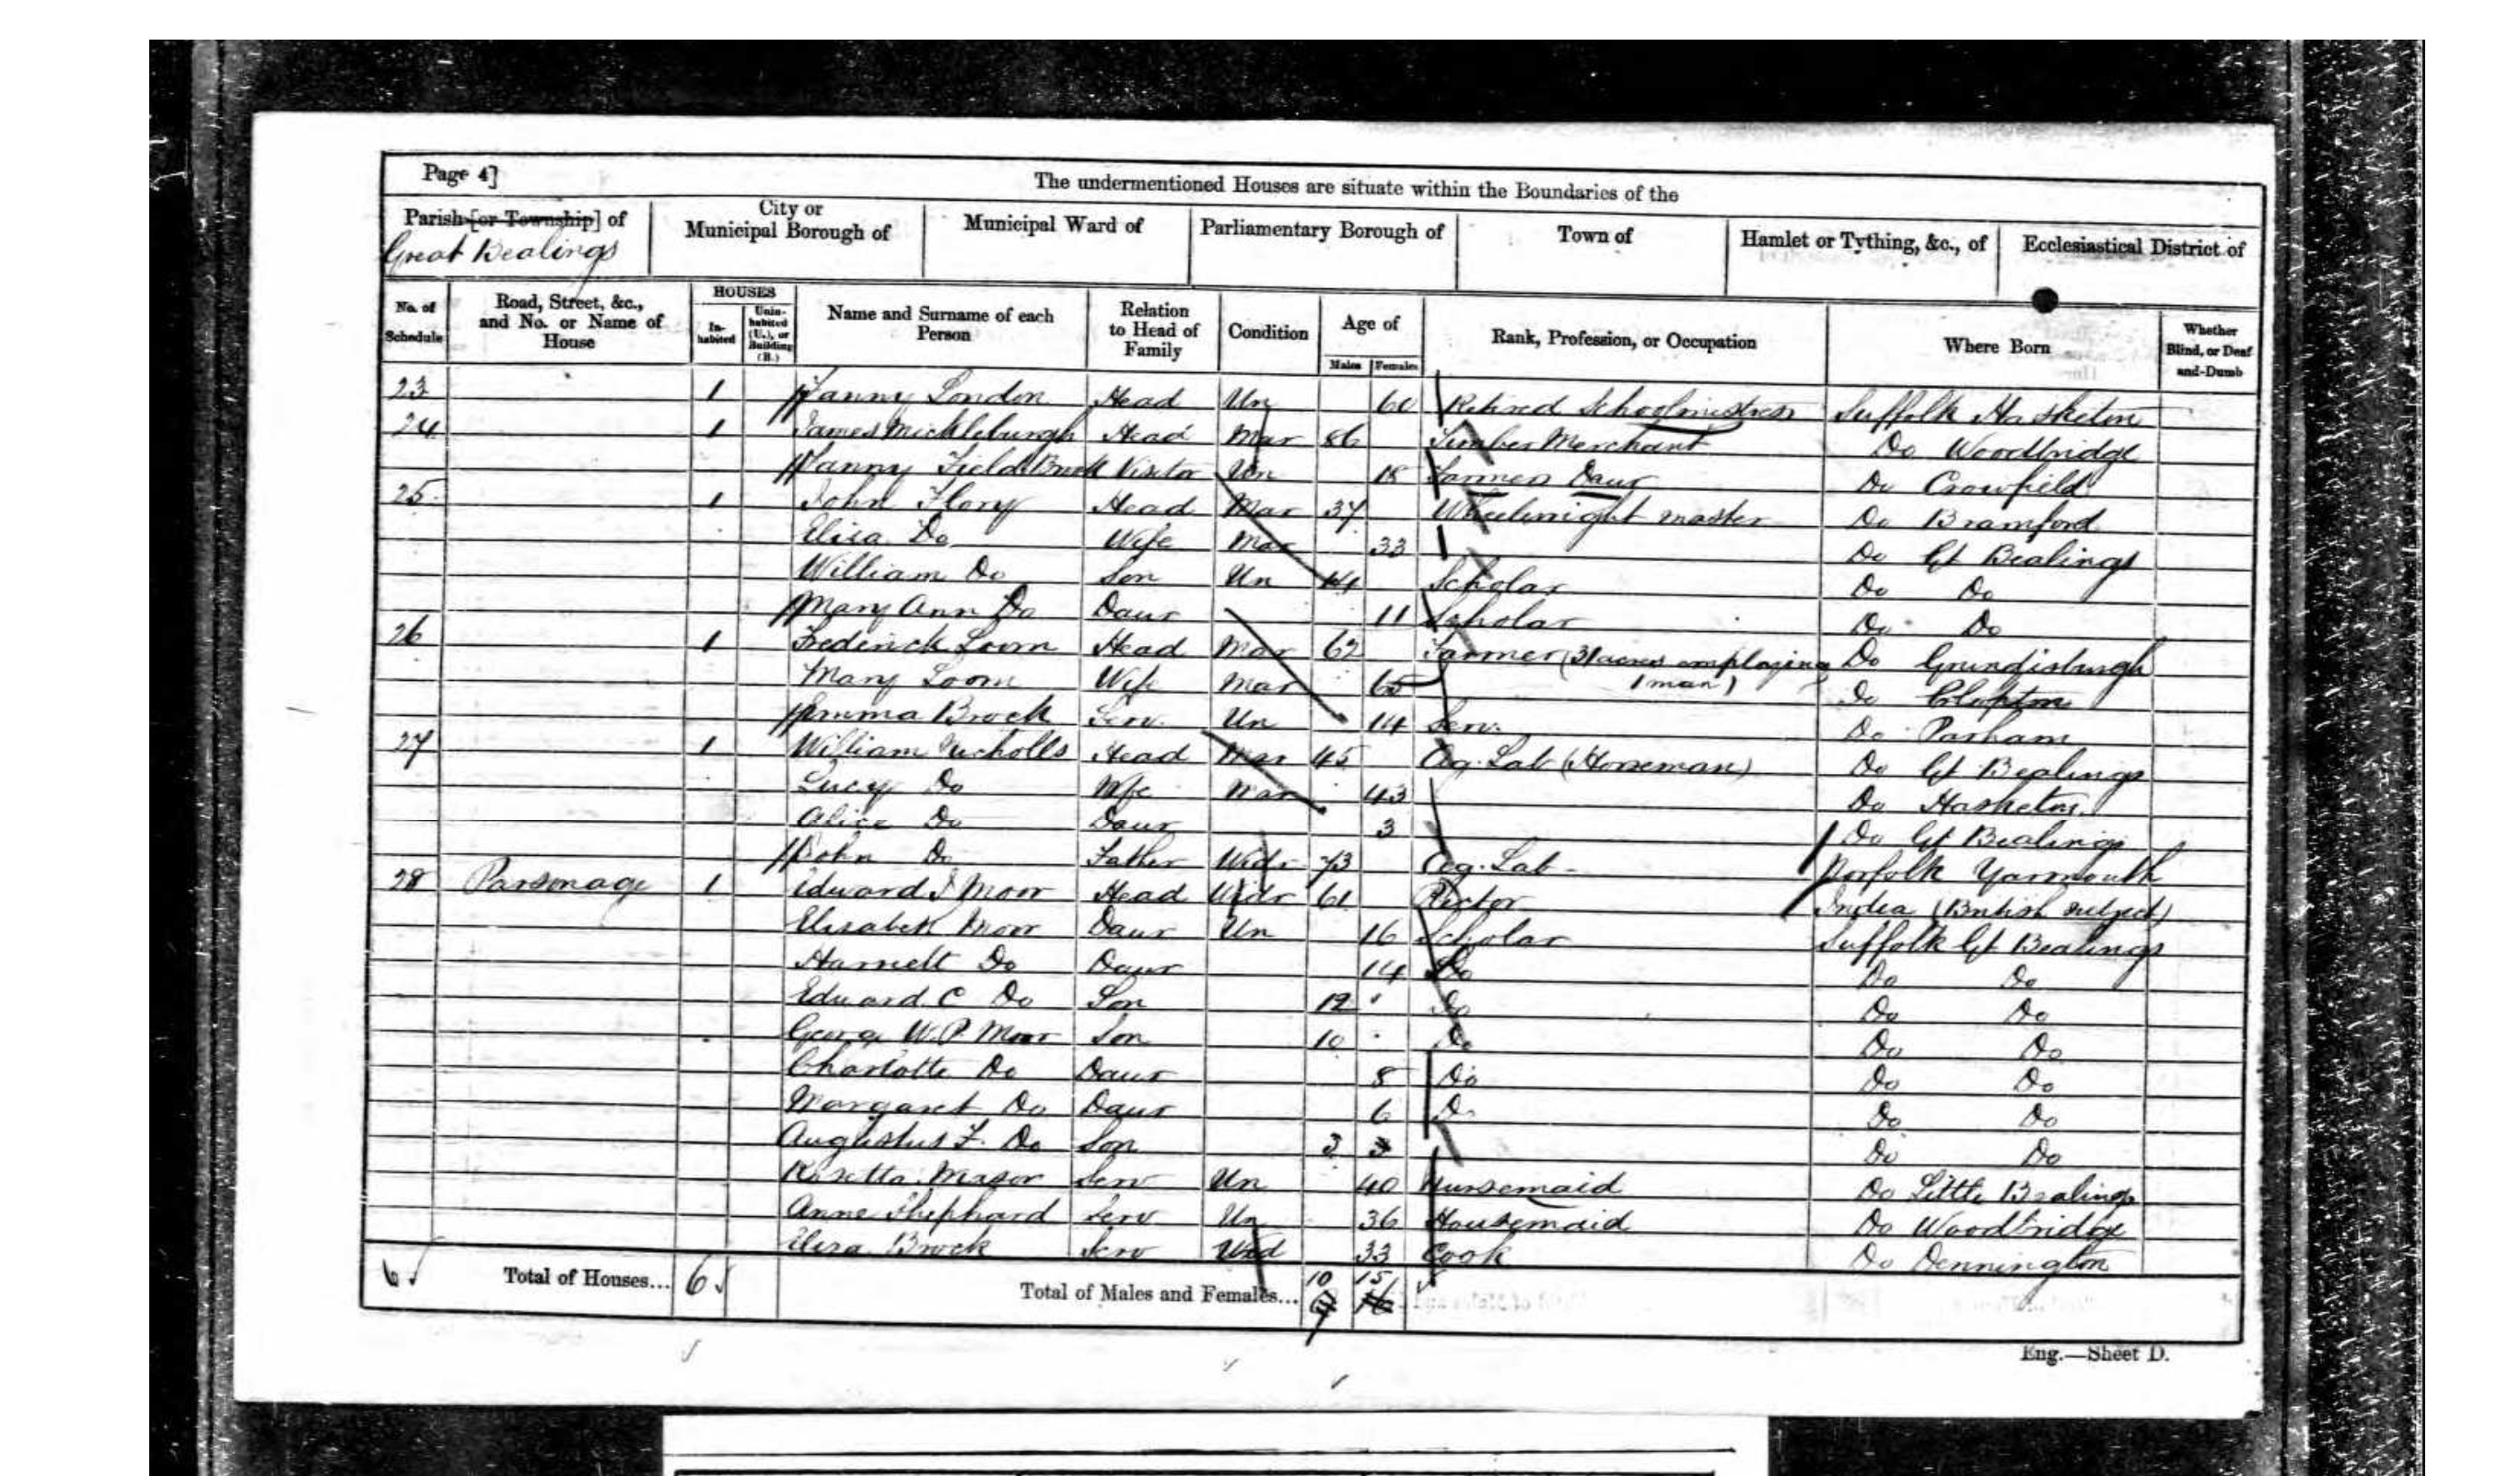 Page 4]
The undermentioned Houses are situate within the Boundaries of the
Parish [or Township] of
Great Bealings
City or
Municipal Borough of
Municipal Ward of
Parliamentary Borough of
Town of
Hamlet or Tything, &c., of
Ecclesiastical District of
No. of Schedule
Road, Street, &c., and No. or Name of House
HOUSES
In-habited
Unin-habited (U.), or Building (B.)
Name and Surname of each Person
Relation to Head of Family
Condition
Age of
Males
Females
Rank, Profession, or Occupation
Where Born
Whether Blind, or Deaf-and-Dumb
23 1 Fanny London Head Un 60 Retired Schoolmistress Suffolk Hasketon
24 1 James Mickleburgh Head Mar 86 Timber Merchant Do Woodbridge
Fanny Visitor Un 18 Farmers Daur Do Crowfield
25 1 John Flory Head Mar 37 Wheelwright master Do Bramford
Eliza Do Wife Mar 33 Do Gt Bealings
William Do Son Un 14 Scholar Do Do
Mary Ann Do Daur 11 Scholar Do Do
26 1 Frederick Loom Head Mar 62 Farmer (31 acres employing 1 man) Do Grundisburgh
Mary Loom Wife Mar 65 Do Clopton
Emma Brock Serv. Un 14 Serv. Do Parham
27 1 William Nicholls Head Mar 45 Ag. Lab (Horseman) Do Gt Bealings
Lucy Do Wife Mar 43 Do Hasketon
Alice Do Daur 3 Do Gt Bealings
John Do Father Widr 73 Ag. Lab - Norfolk Yarmouth
28 Parsonage 1 Edward J Moor Head Widr 61 Rector India (British subject)
Elizabeth Moor Daur Un 16 Scholar Suffolk Gt Bealings
Harriett Do Daur 14 Do Do Do
Edward C Do Son 12 Do Do Do
George W. P. Moor Son 10 Do Do Do
Charlotte Do Daur 8 Do Do Do
Margaret Do Daur 6 Do Do Do
Augustus F. Do Son 3 Do Do
Rosetta Mayor Serv Un 40 Nursemaid Do Little Bealings
Anne Shephard Serv Un 36 Housemaid Do Woodbridge
Eliza Brock Serv Wid 33 Cook Do Dennington
6 Total of Houses... 6 Total of Males and Females... 10 15
Eng.—Sheet D.